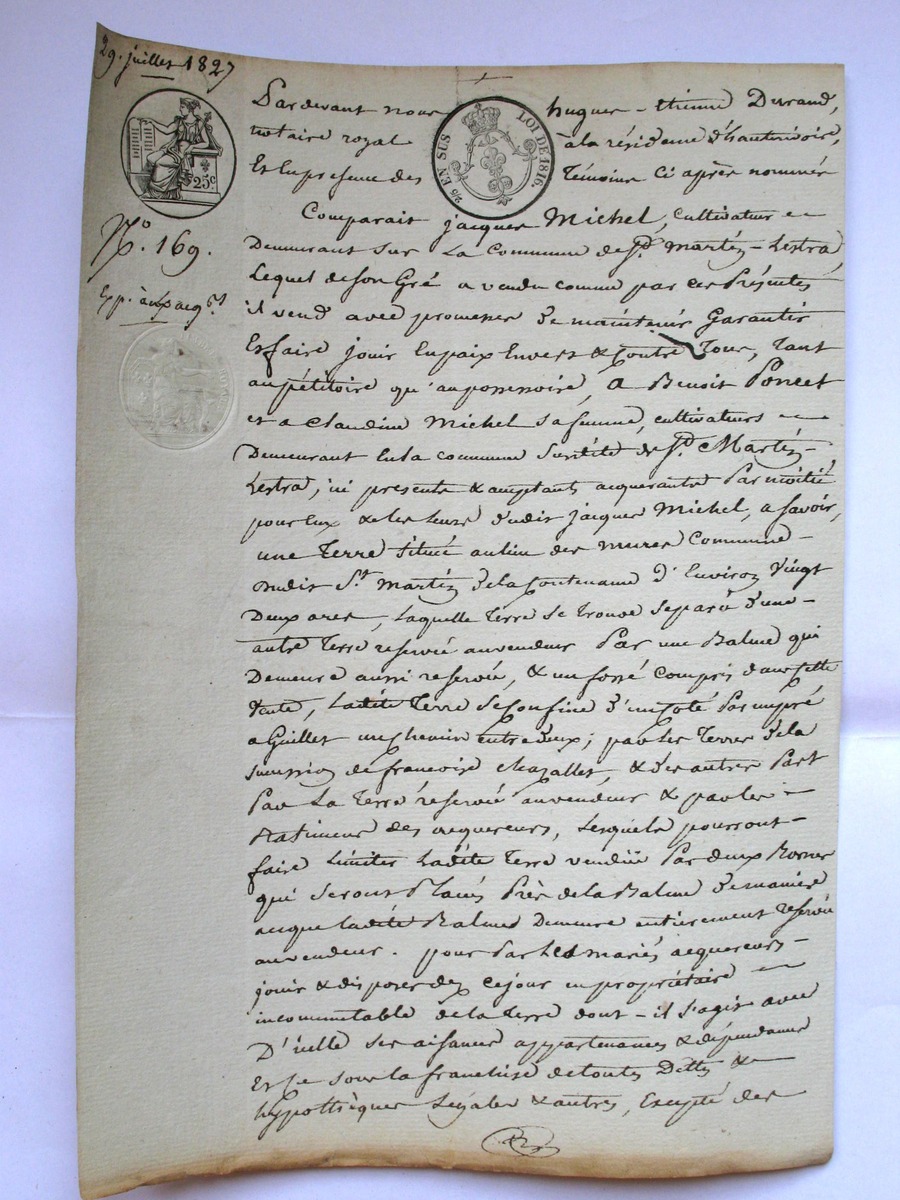 29. juillet 1827
25c
2/5 EN SUS LOI DE 1816.
N.o 169.
Exp. aux acq.rs
Par devant nous hugues - étienne Durand,
notaire royal à la résidence d'hauterivoire,
Et En presence des Témoins Ci après nommés
Comparait jacques Michel, cultivateur
Demeurant sur la Commune de St. Martin - Lestra,
Lequel de son Gré a vendu comme par ces Présentes
il vend avec promesse de maintenir Garantir
Et faire jouir En paix Envers & Contre Tous, tant
au pétitoire qu'au possessoire, a Benoit Poncet
et a Claudine Michel sa femme, cultivateurs
Demeurant En la commune susdite de St. Martin -
Lestra, ici presents & acceptants acquereurs Par moitié
pour Eux & les leurs dudit jacques Michel, a savoir,
une Terre située au lieu des mures Commune -
dudit St. Martin de la Contenance d'Environ Vingt
Deux ares, laquelle Terre se trouve separée d'une -
autre Terre reservée au vendeur Par une Balme qui
Demeure aussi reservée, & un fossé compris dans cette
Vente, Ladite Terre Se Confine d'un coté Par un pré
a Guillet un chemin entre deux; par les Terres de la
succession de francoise Chazallet, & des autres Part
Par La Terre reservée au vendeur & par les
Batimens des acquereurs, Lesquels pourront -
faire Limiter Ladite Terre vendüe Par deux Bornes
qui Seront Placés Près de la Balme de maniere
a ce que ladite Balme Demeure entierement reservée
au vendeur. pour Par Les mariés acquereurs -
jouir & disposer dez ce jour en propriétaire
incommutable de la Terre dont - il s'agit avec
D'icelle ses aisances appartenances & dépendances
Et ce sous la franchise de toutes Dettes &
hypothèques Légales & autres, Excepté des